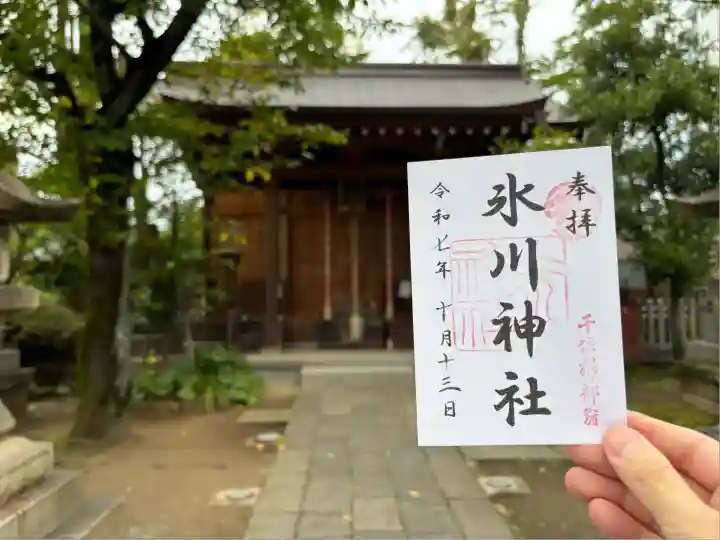 奉拝
氷川神社
令和七年 十月十三日